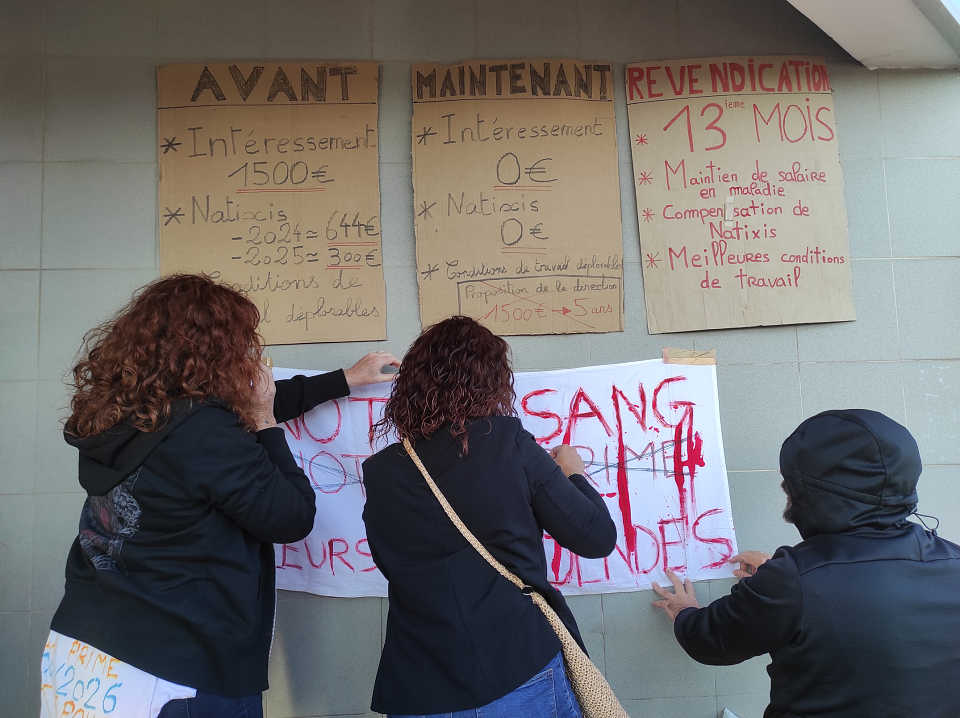 AVANT
* Intéressement
1500€
* Natixis
-2024 ≈ 644€
-2025 ≈ 300€
Conditions de
déplorables
MAINTENANT
* Intéressement
0€
* Natixis
0€
* Conditions de travail déplorables
Proposition de la direction
1500€ → 5 ans
REVENDICATION
* 13ième MOIS
* Maintien de salaire
en maladie
* Compensation de
Natixis
* Meilleures conditions
de travail
SANG
EURS DENDES
PRIME
2026